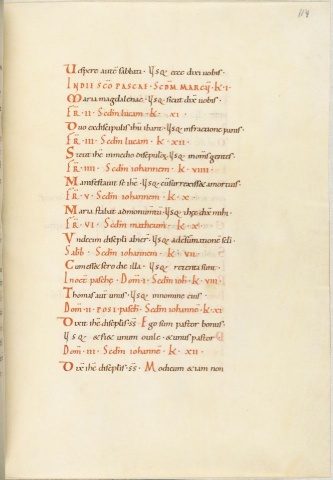 114
Uespere autē sabbati · usq ecce dixi uobis ·
IN DIE SCO PASCAE · SCDM MARCV · K · I ·
Maria magdalenae · usq sicut dix uobis ·
FR · II · Scdm lucam · k · XI ·
Duo ex discipulis ihu ibant · usq in fractione panis ·
FR · III · Scdm lucam · k · XII ·
Stetit ihc in medio discipulor · usq in oms gentes ·
FR · IIII · Scdm iohannem · k · VIIII ·
Manifestauit se ihc · usq cū surrexisset a mortuis ·
FR · V · Scdm iohannem · k · X ·
Maria stabat ad monumtū · usq hec dix mihi ·
FR · VI · Scdm matheum · k · X ·
Undecim discipli abier · usq ad csūmatione scli ·
Sabb · Scdm iohannem · k · VII ·
Cum esset sero die illa · usq retenta sunt ·
In oct pasche · Dom · I · Scdm ioh · k · VIII ·
Thomas aut unus · usq in nomine eius ·
Dom · II · POST pasch · Scdm iohanne · k · XI
Dixit ihc discplis ss · Ego sum pastor bonus ·
usq et fiet unum ouile · et unus pastor
Dom · III · Scdm iohanne · k · XII ·
Dix ihc discplis · ss · Modicum et iam non